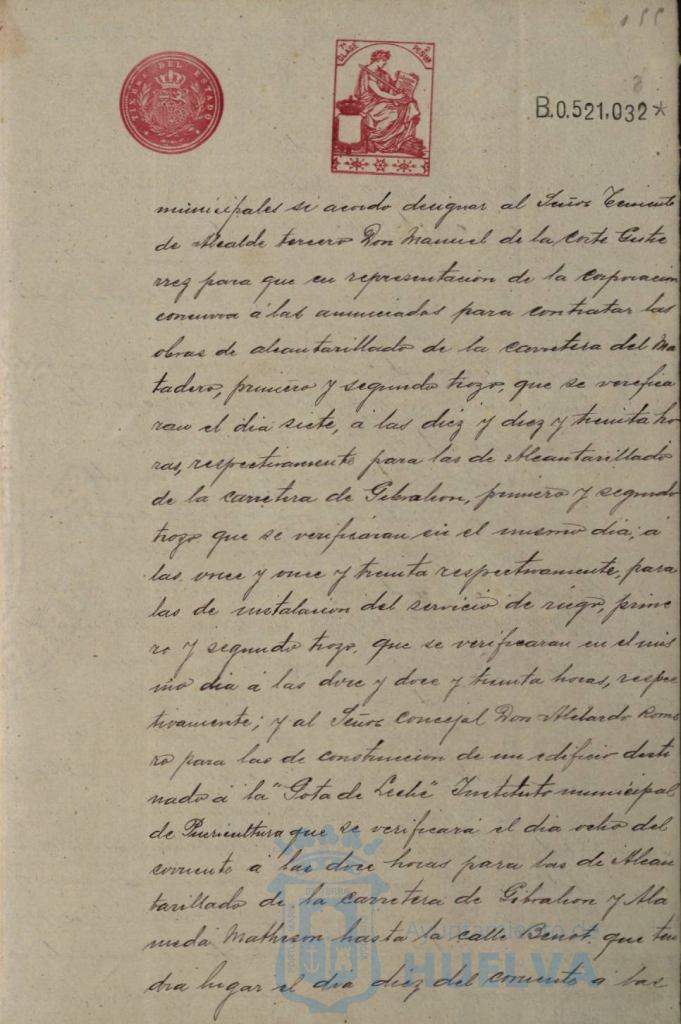 155
TIMBRE DEL ESTADO
7ª CLASE 2 PESETAS
B.0.521,032*
municipales se acordo designar al Señor Teniente
de Alcalde tercero Don Manuel de la Corte Gutie
rrez para que en representacion de la corporacion
concurra á las anunciadas para contratar las
obras de alcantarillado de la carretera del Ma
tadero, primero y segundo trozo, que se verifica
ran el dia siete, á las diez y diez y treinta ho
ras, respectivamente para las de Alcantarillado
de la carretera de Gibraleon, primero y segundo
trozo que se verificaran en el mismo dia, á
las once y once y treinta respectivamente, para
las de instalacion del servicio de riego, prime
ro y segundo trozo, que se verificaran en el mis
mo dia á las doce y doce y treinta horas, respec
tivamente; y al Señor Concejal Don Abelardo Rome
ro para las de construccion de un edificio desti
nado á la "Gota de Leche" Instituto municipal
de Puericultura que se verificará el dia ocho del
corriente á las doce horas para las de Alcan
tarillado de la carretera de Gibraleon y Ala
meda Matheson hasta la calle Benot. que ten
dra lugar el dia diez del corriente á las
Ayuntamiento de
HUELVA